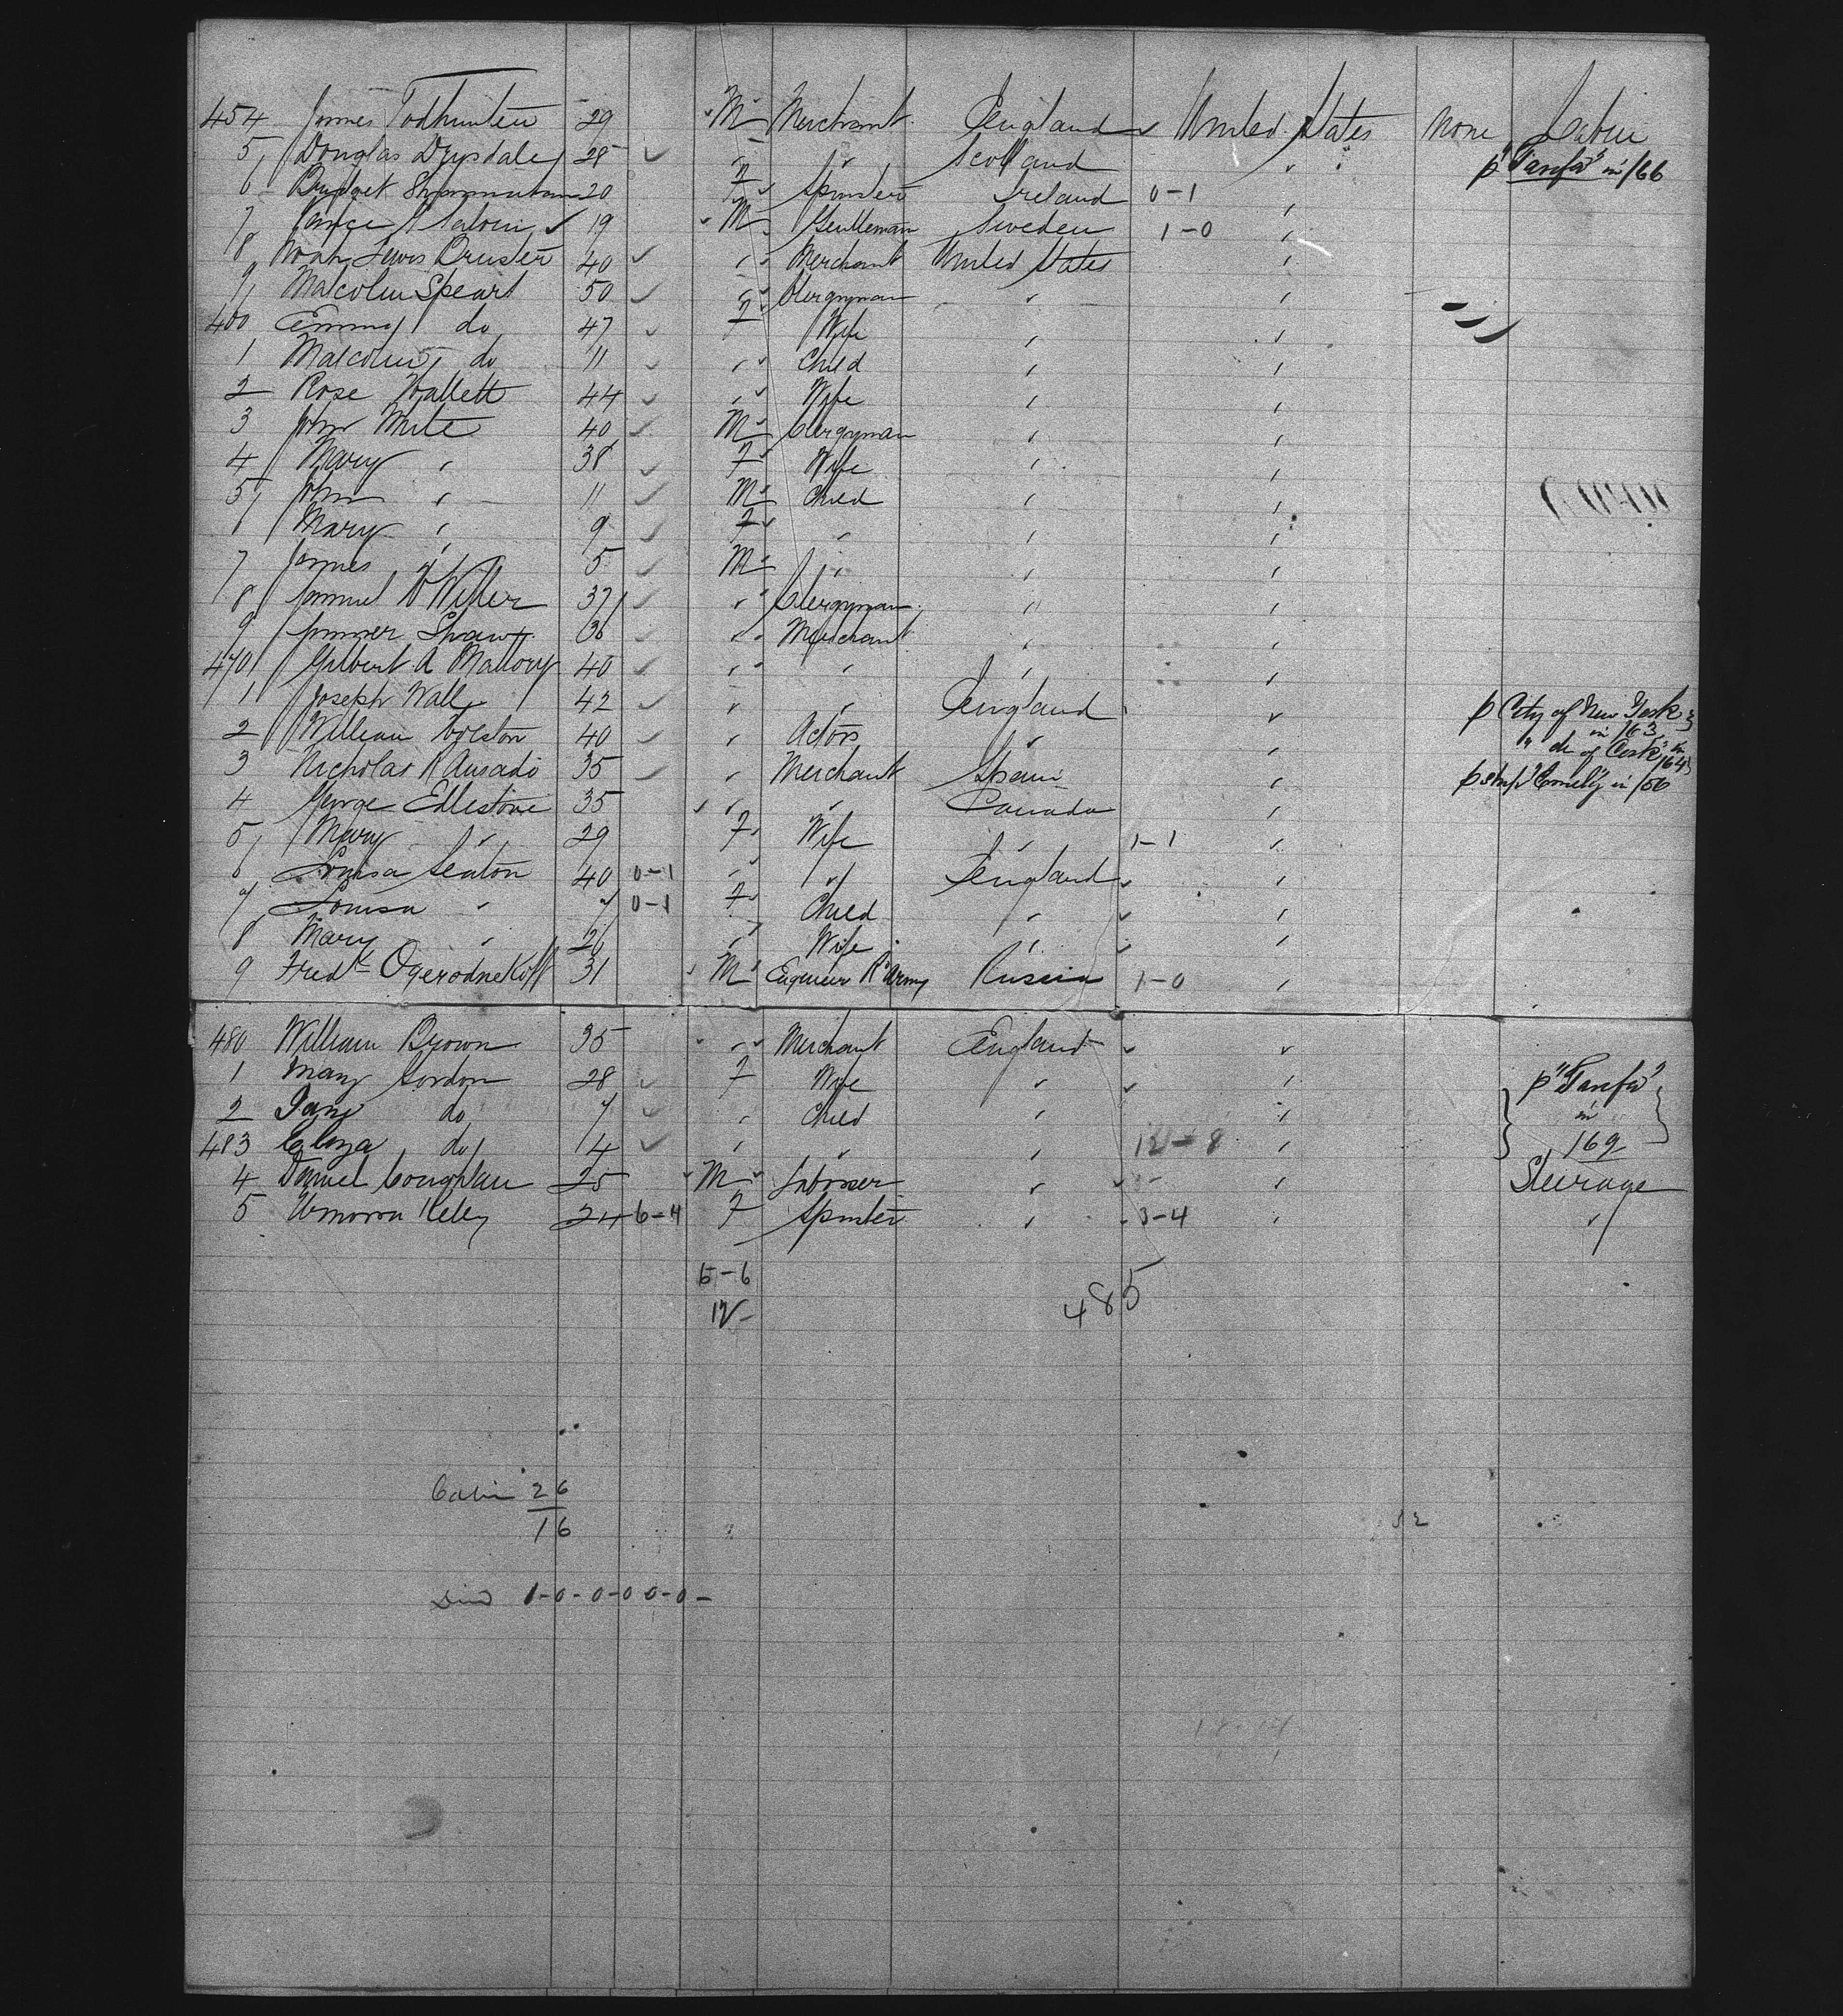 454 James Todhunter 29 M Merchant England United States None Cabin
5 Douglas Drysdale 28 " " Scotland " p "Tarifa" in /66
6 Bridget 20 F Spinster Ireland 0-1 "
7 19 M Gentleman Sweden 1-0 "
8 Noah Lewis 40 " Merchant United States "
9 Malcolm Speart 50 " Clergyman " "
460 Emmy do 47 F Wife " "
1 Malcolm do 11 " Child " "
2 Rose Hallett 44 " Wife " "
3 John White 40 M Clergyman " "
4 Mary " 38 F Wife " "
5 John " 11 M Child " "
6 Mary " 9 F " " "
7 James " 5 M " " "
8 Samuel 37 " Clergyman " "
9 Shaw 36 " Merchant " "
470 Gilbert A Mallory 40 " " " "
1 Joseph Wall 42 " " England " p City of New York in 163
2 William 40 " Actors " " " do of Cork" in 164
3 Nicholas R 35 " Merchant Spain " p ship "Emily" in /56
4 George Edlestone 35 " " Canada "
5 Mary " 29 F Wife " 1-1 "
6 Louisa Seaton 40 0-1 " " England "
7 Louisa " 7 0-1 F Child " "
8 Mary " 26 " Wife " "
9 Fredk Ogerodnekoff 31 M Engineer R Army Russia 1-0 "
480 William Brown 35 " Merchant England "
1 Mary Gordon 28 F Wife " " p "Tarifa"
2 Jane do 7 " Child " " in
483 Eliza do 14 " " " 12-8 " 169
4 Daniel Coughlan 25 M Labourer " " Steerage
5 24 6-4 F Spinster " 3-4 " "
5-6
12
485
Cabin 26
16
Died 1-0-0-0 0-0-